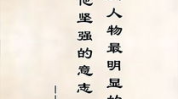 人物最明显的
他坚强的意志
——